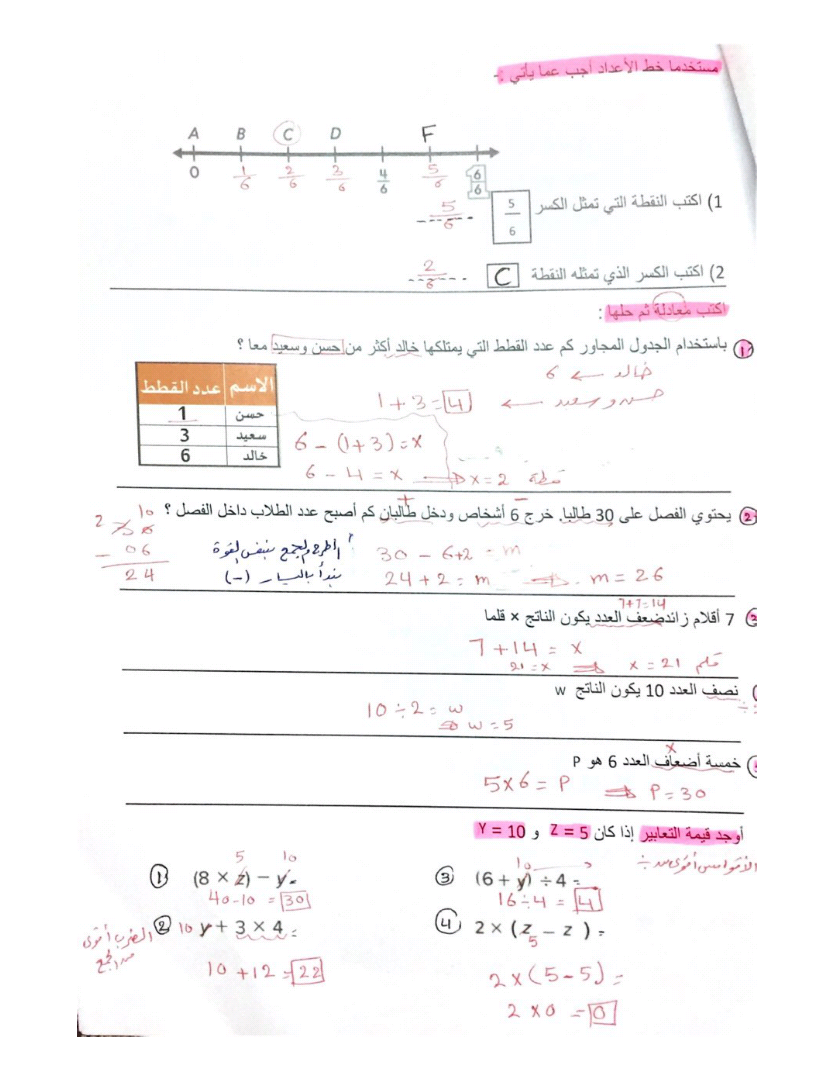 مستخدما خط الأعداد أجب عما يأتي :-
A B C D F
0 1/6 2/6 3/6 4/6 5/6 6/6
1) اكتب النقطة التي تمثل الكسر 5/6 5/6
2) اكتب الكسر الذي تمثله النقطة C 2/6
اكتب معادلة ثم حلها :
1 باستخدام الجدول المجاور كم عدد القطط التي يمتلكها خالد أكثر من حسن وسعيد معا ؟
خالد ← 6
حسن وسعيد ← 1 + 3 = 4
الاسم عدد القطط
حسن 1
سعيد 3
خالد 6
6 - (1+3) = x
6 - 4 = x ⇒ x = 2 قطة
2 يحتوي الفصل على 30 طالبا. خرج 6 أشخاص ودخل طالبان كم أصبح عدد الطلاب داخل الفصل ؟
- +
30 - 6+2 = m
24 + 2 = m ⇒ m = 26
الطرح والجمع بنفس القوة
نبدأ باليسار (-)
2 10
- 06
24
7+7=14
3 7 أقلام زائد ضعف العدد يكون الناتج x قلما
7 + 14 = x
21 = x ⇒ x = 21 قلم
نصف العدد 10 يكون الناتج w
÷
10 ÷ 2 = w
⇒ w = 5
x
5 خمسة أضعاف العدد 6 هو P
5x6 = P ⇒ P = 30
أوجد قيمة التعابير إذا كان Z = 5 و Y = 10
الأقواس أقوى من ÷
5 10
1 (8 × z) − y =
40-10 = 30
2 10 y + 3 × 4 =
الضرب أقوى من الجمع
10 + 12 = 22
10
3 (6 + y) ÷ 4 =
16 ÷ 4 = 4
4 2 × (z − z ) =
5
2 x (5 - 5) =
2 x 0 = 0